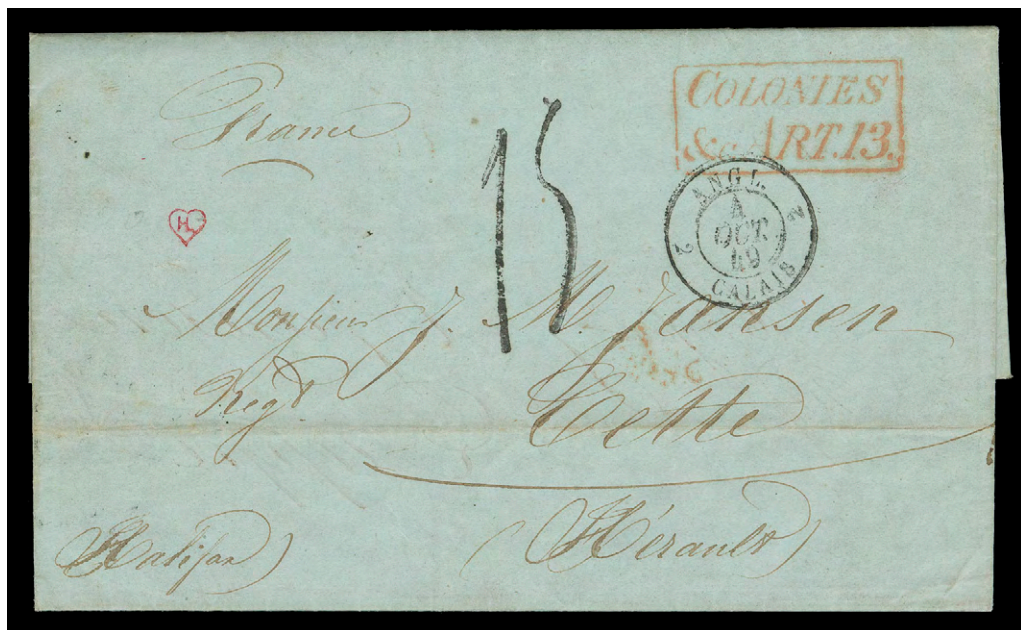 France
COLONIES
&c. ART. 13.
15
ANGL.
2 2
A
OCT.
49
CALAIS
H
Monsieur J. M. Jansen
Negt
Cette
(Hérault)
(Halifax)